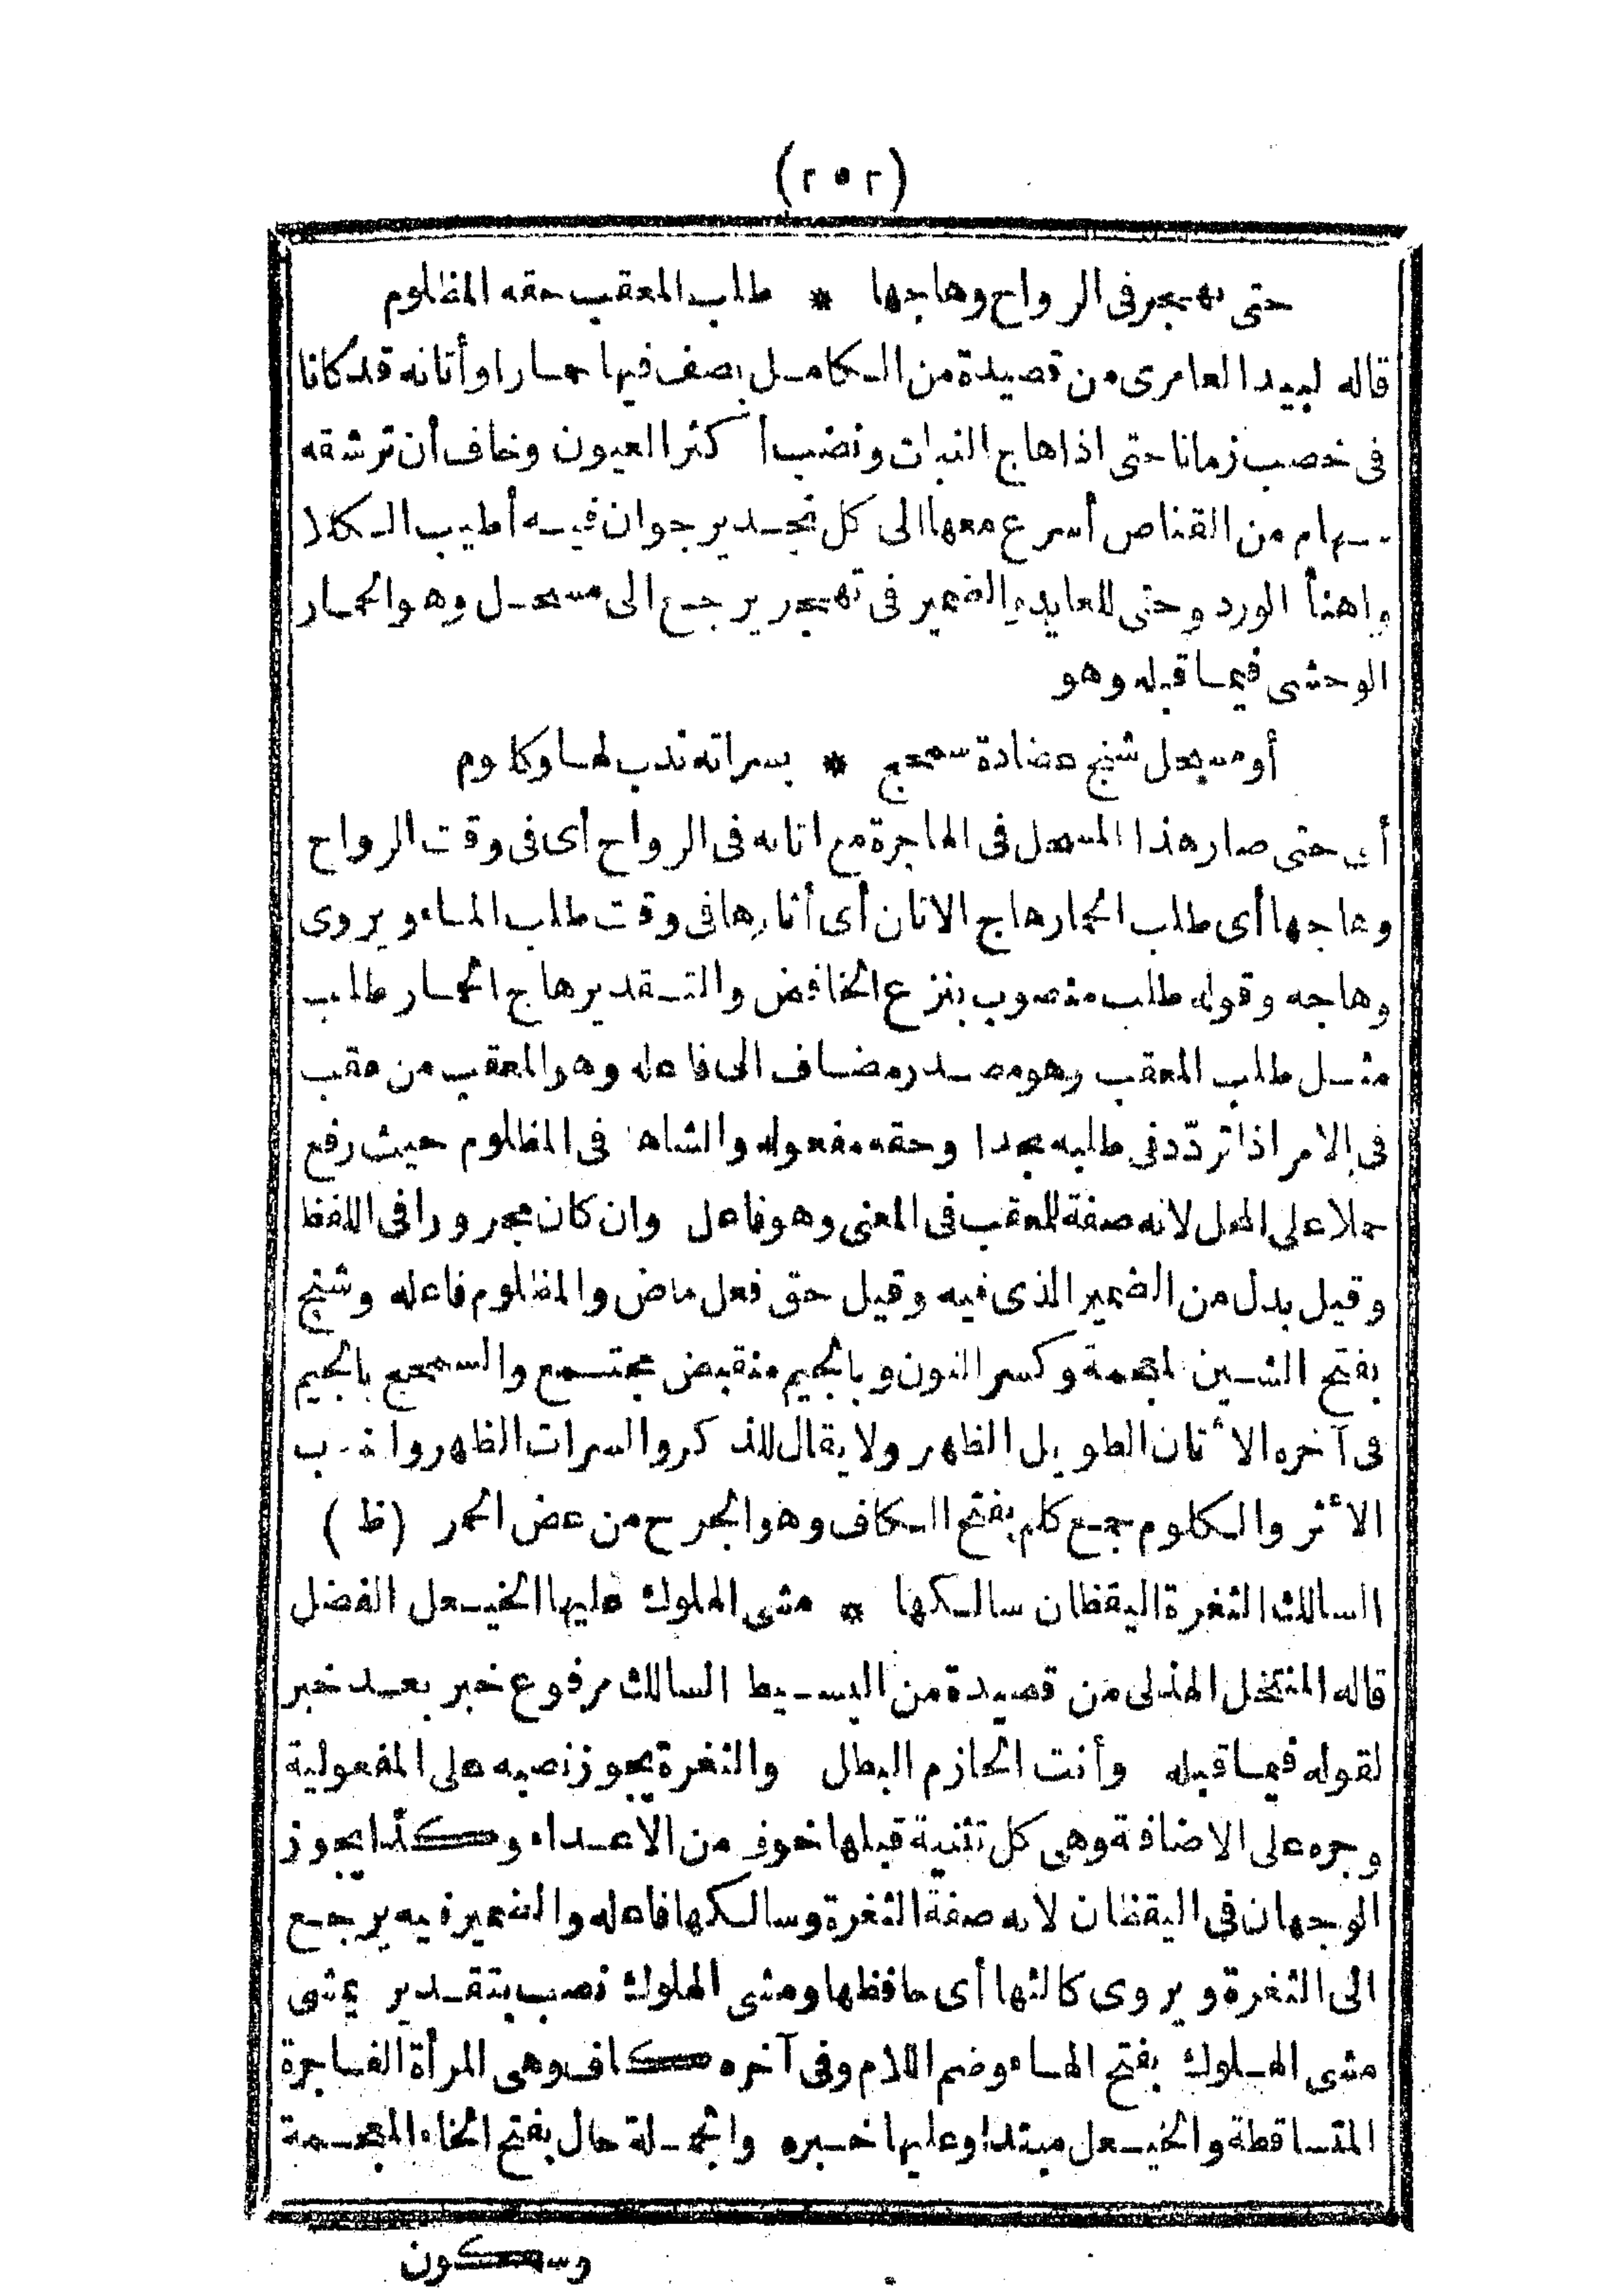 (٢٥٢)
حتى تهجر فى الرواح وهاجها * طلب المعقب حقه المظلوم
قاله لبيد العامرى من قصيدة من الكامل يصف فيها حمارا وأتانه قد كانا
فى خصب زمانا حتى اذا هاج النبات ونضب أكثر العيون وخاف أن ترشقه
سهام من القناص أسرع معها الى كل نجد يرجوان فيه أطيب الكلا
واهنأ الورد وحتى للغاية والضمير فى تهجر يرجع الى مسحل وهو الحمار
الوحشى فيما قبله وهو
أو مسحل شنج عضادة سمحج * بسراته ندب لها وكلوم
أى حتى صار هذا المسحل فى الهاجرة مع اتانه فى الرواح أى فى وقت الرواح
وهاجها أى طلب الحمار هاج الاتان أى أثارها فى وقت طلب الماء ويروى
وهاجه وقوله طلب منصوب بنزع الخافض والتقدير هاج الحمار طلب
مثل طلب المعقب وهو مصدر مضاف الى فاعله وهو المعقب من عقب
فى الامر اذا تردّد فى طلبه مجدا وحقه مفعوله والشاهد فى المظلوم حيث رفع
حملا على المحل لانه صفة للمعقب فى المعنى وهو فاعل وان كان مجرورا فى اللفظ
وقيل بدل من الضمير الذى فيه وقيل حق فعل ماض والمظلوم فاعله وشنج
بفتح الشين المعجمة وكسر النون وبالجيم منقبض مجتمع والسمحج بالجيم
فى آخره الأتان الطويل الظهر ولا يقال للذكر والسرات الظهر والندب
الأثر والكلوم جمع كلم بفتح الكاف وهو الجرح من عض الحمر (ظ)
السالك الثغرة اليقظان سالكها * مشى الهلوك عليها الخيعل الفضل
قاله المنتخل الهذلى من قصيدة من البسيط السالك مرفوع خبر بعد خبر
لقوله فيما قبله وأنت الحازم البطل والثغرة يجوز نصبه على المفعولية
وجره على الاضافة وهى كل تثنية قبلها خوف من الاعداء وكذا يجوز
الوجهان فى اليقظان لانه صفة الثغرة وسالكها فاعله والضمير فيه يرجع
الى الثغرة ويروى كالئها أى حافظها ومشى الهلوك نصب بتقدير يمشى
مشى الهلوك بفتح الهاء وضم اللام وفى آخره كاف وهى المرأة الفاجرة
المتساقطة والخيعل مبتدا وعليها خبره والجملة حال بفتح الخاء المعجمة
وسكون